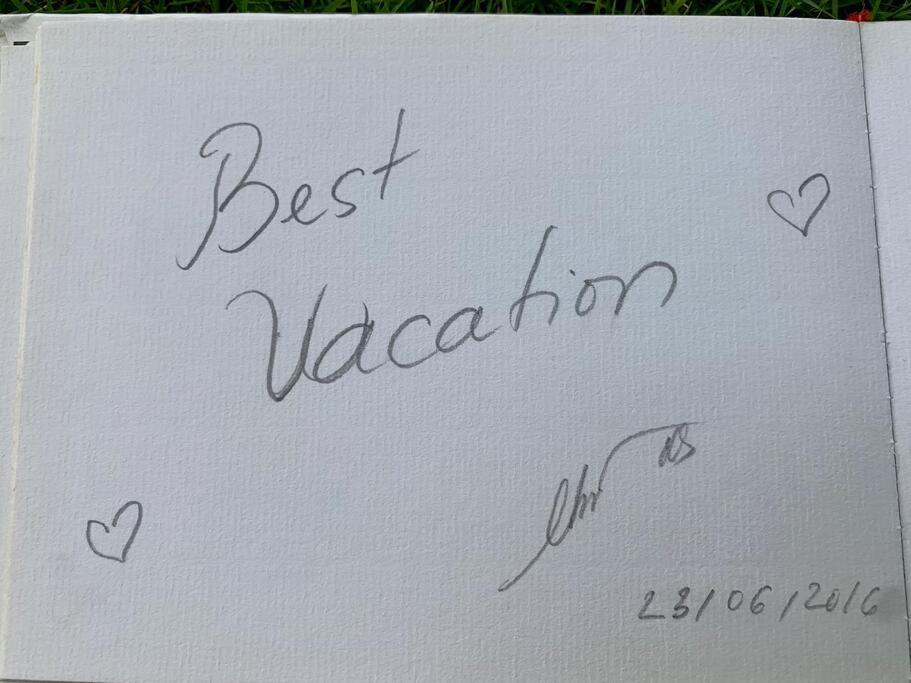 Best
Vacation
23/06/2016